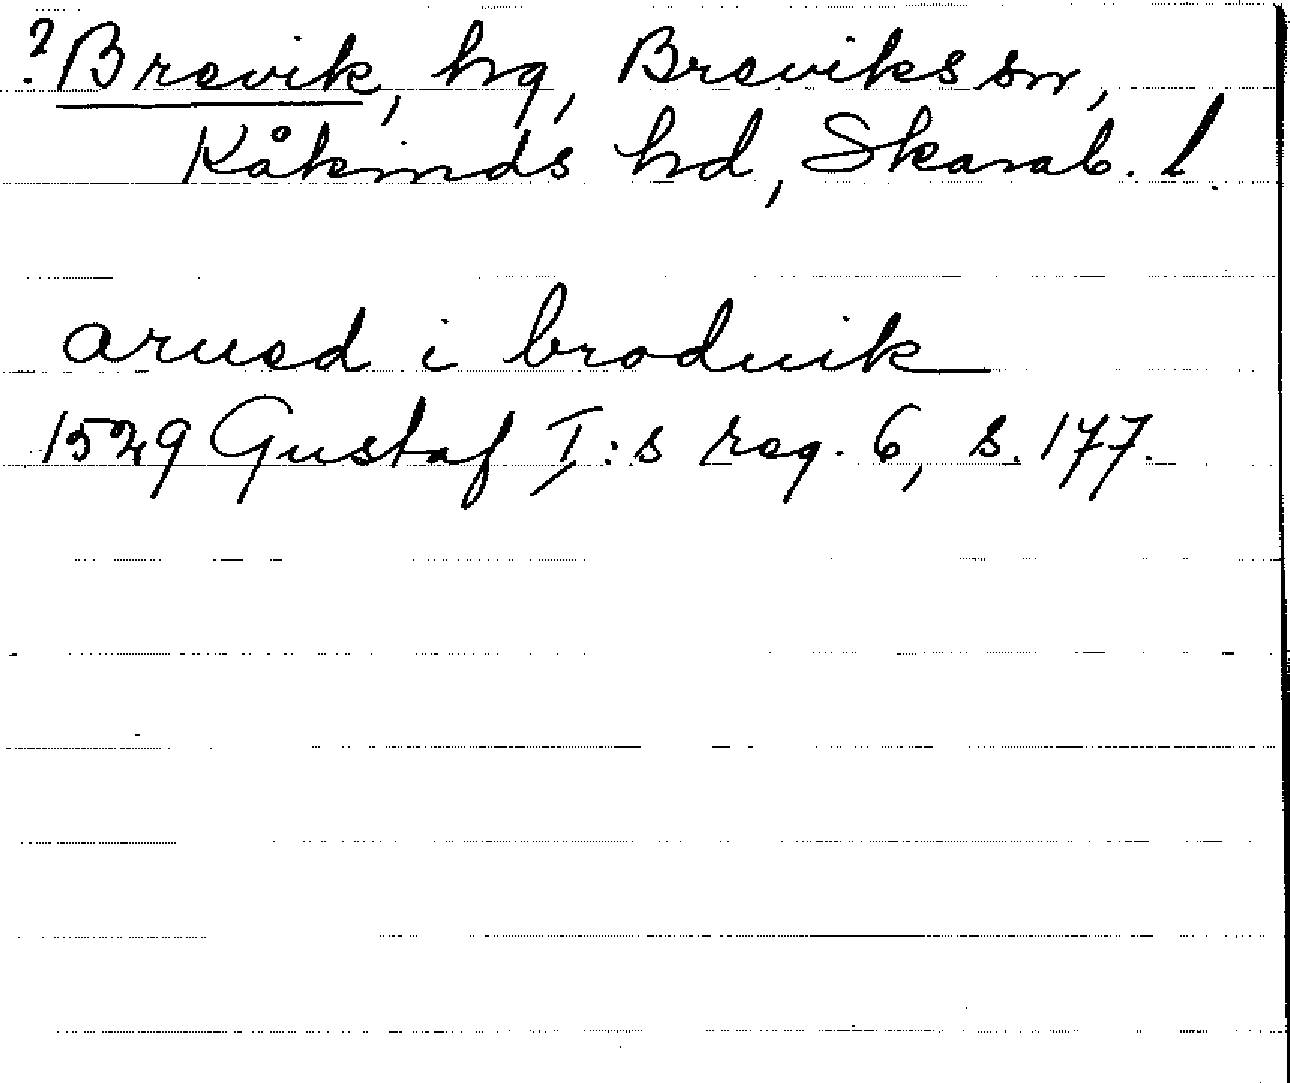 ?Brevik, hg, Breviks sn,
Kåkinds hd, Skarab. l.
arued i brodwik
1529 Gustaf I:s reg. 6, s. 177.